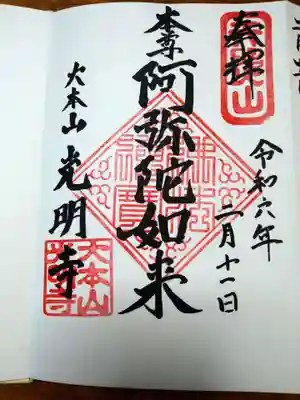 奉拝
令和六年
二月十一日
本尊
阿弥陀如来
大本山
光明寺
大本山